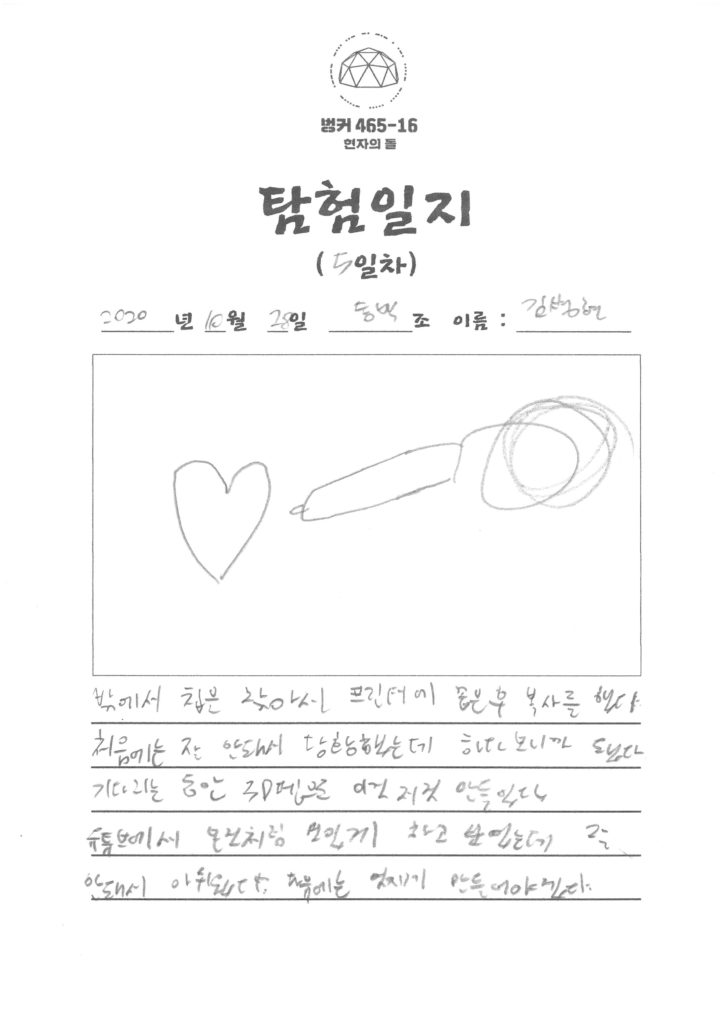 벙커 465-16
현자의 돌
탐험일지
(5일차)
2020 년 10월 28일 동백조 이름 : 김범현
밖에서 칩은 찾아서 프린터에 꼽은후 복사를 했다.
처음에는 잘 안돼서 당황했는데 하다보니까 됐다
기다리는 동안 3D펜으로 이것 저것 만들었다
유튜브에서 처럼 하고 는데 잘
안돼서 아쉬웠다. 다음에는 만들어야겠다.